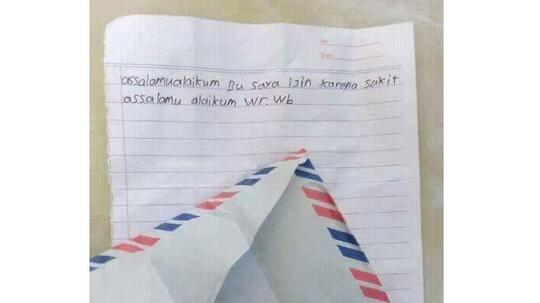 No
Date
assalamualaikum Bu saya izin karena sakit
assalamu alaikum Wr. Wb